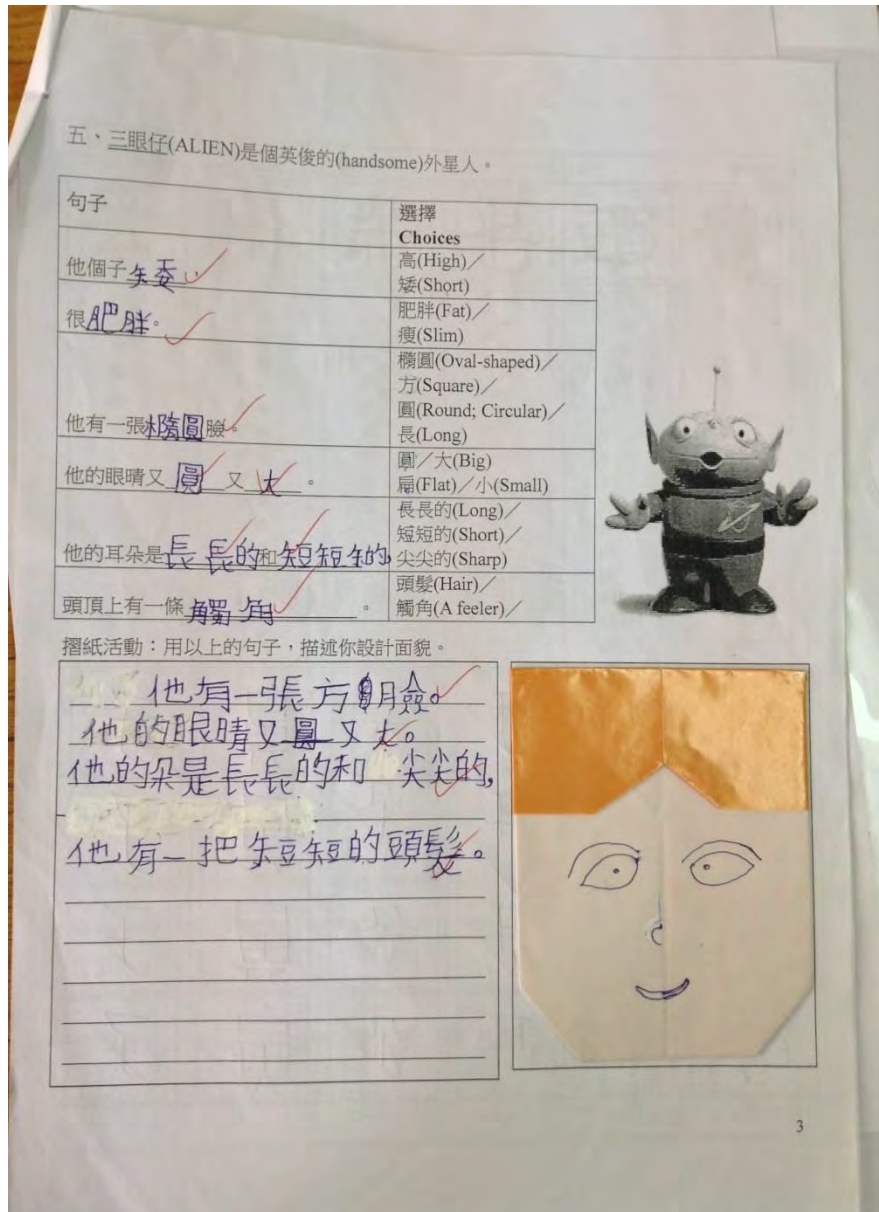 五、三眼仔(ALIEN)是個英俊的(handsome)外星人。
句子
選擇
Choices
他個子矮
高(High)／
矮(Short)
很肥胖。
肥胖(Fat)／
瘦(Slim)
他有一張橢圓臉。
橢圓(Oval-shaped)／
方(Square)／
圓(Round; Circular)／
長(Long)
他的眼睛又圓又大。
圓／大(Big)
扁(Flat)／小(Small)
他的耳朵是長長的和短短的,
長長的(Long)／
短短的(Short)／
尖尖的(Sharp)
頭頂上有一條觸角。
頭髮(Hair)／
觸角(A feeler)／
摺紙活動：用以上的句子，描述你設計面貌。
他有一張方臉。
他的眼睛又圓又大。
他的朵是長長的和尖尖的,
他有一把短短的頭髮。
3